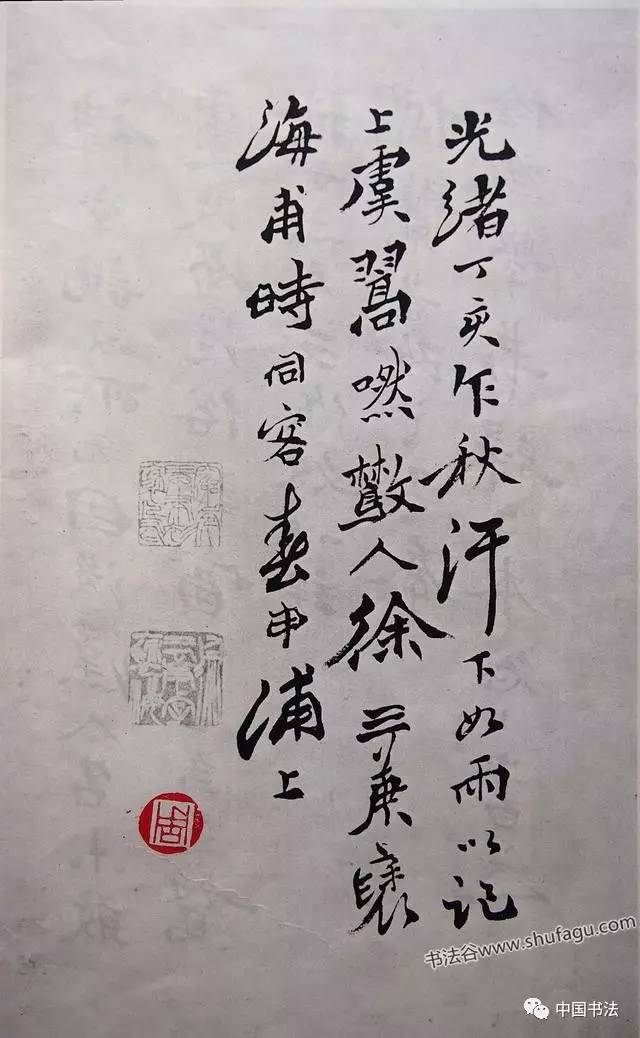 光緒丁亥乍秋汗下如雨以記
上虞翯嘫散人徐三庚褎
海甫時同客春申浦上
书法谷www.shufagu.com
中国书法